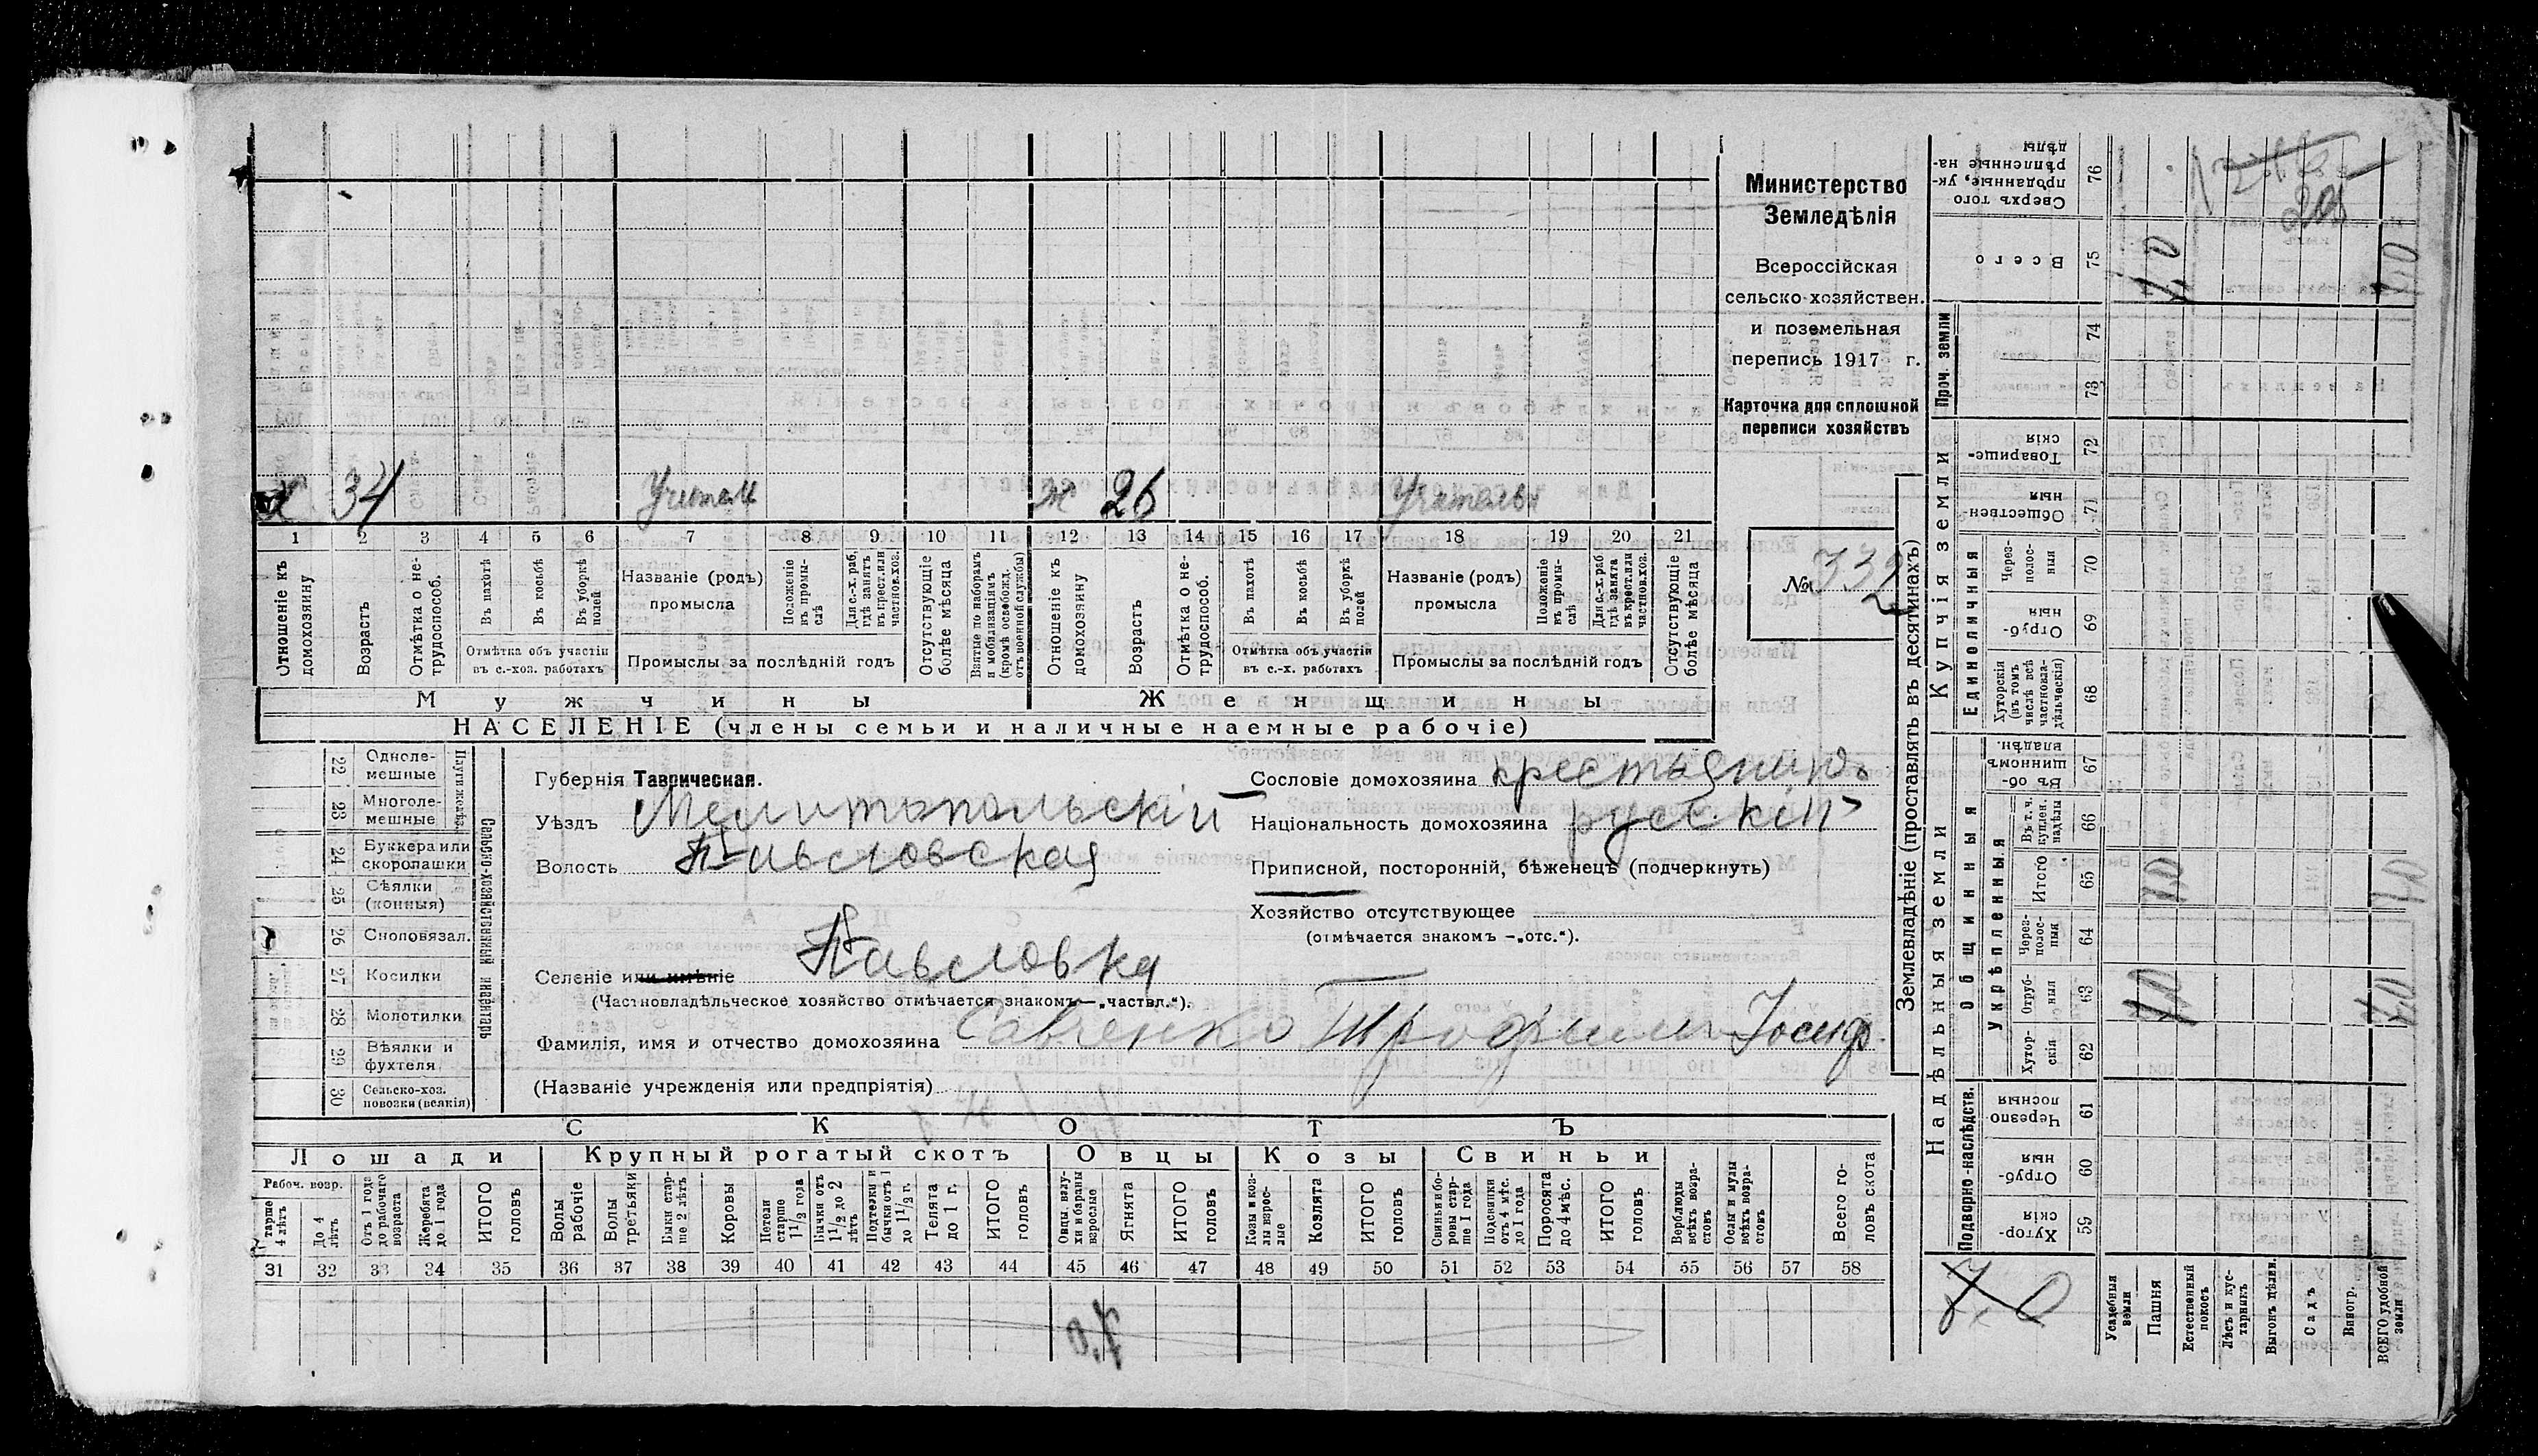 Х 34 Учител ж 26 Учительн
1 2 3 4 5 6 7 8 9 10 11 12 13 14 15 16 17 18 19 20 21
Отношеніе къ домохозяину
Возрастъ
Отмѣтка о не-трудоспособ.
Въ пахотѣ
Въ косьбѣ
Въ уборкѣ полей
Отмѣтка объ участіи
въ с.-хоз. работахъ
Названіе (родъ)
промысла
Положеніе въ промы-слѣ
Для с.-х. раб. гдѣ занятъ въ крест. или частнов. хоз.
Промыслы за послѣдній годъ
Отсутствующіе болѣе мѣсяца
Взятые по наборамъ и мобилизаціямъ (кромѣ освобожд. отъ военной службы)
Отношеніе къ домохозяину
Возрастъ
Отмѣтка о не-трудоспособ.
Въ пахотѣ
Въ косьбѣ
Въ уборкѣ полей
Отмѣтка объ участіи
въ с.-х. работахъ
Названіе (родъ)
промысла
Положеніе въ промы-слѣ
Для с.-х. раб. гдѣ занята въ крест. или частнов. хоз.
Промыслы за послѣдній годъ
Отсутствующіе болѣе мѣсяца
Мужчины Женщины
НАСЕЛЕНІЕ (члены семьи и наличные наемные рабочіе)
Министерство
Земледѣлія
Всероссійская
сельско-хозяйствен.
и поземельная
перепись 1917 г.
Карточка для сплошной
переписи хозяйствъ
№ 332
22 Одноле-мешные
23 Многоле-мешные
24 Буккера или скоропашки
25 Сѣялки (конныя)
26 Сноповязал.
27 Косилки
28 Молотилки
29 Вѣялки и фухтеля
30 Сельско-хоз. повозки (всякія)
Сельско-хозяйственный инвентарь
Губернія Таврическая.
Уѣздъ Мелитопольскій
Волость Павловская
Селеніе или имѣніе Павловка
(Частновладѣльческое хозяйство отмѣчается знакомъ — „частвл.“).
Фамилія, имя и отчество домохозяина Савченко Трофимъ Іосиф.
(Названіе учрежденія или предпріятія)
Сословіе домохозяина крестьянинъ
Національность домохозяина русскій
Приписной, посторонній, бѣженецъ (подчеркнуть)
Хозяйство отсутствующее
(отмѣчается знакомъ — „отс.“).
СКОТЪ
Лошади Крупный рогатый скотъ Овцы Козы Свиньи
Рабоч. возр.
старше 4 лѣтъ
До 4 лѣтъ
Отъ 1 года до рабочаго возраста
Жеребята до 1 года
ИТОГО головъ
Волы рабочіе
Волы третьяки
Быки стар-ше 2 лѣтъ
Коровы
Нетели старше 1½ года
Бычки отъ 1½ до 2 лѣтъ
Подтелки и бычки отъ 1 до 1½ г.
Телята до 1 г.
ИТОГО головъ
Овцы, валу-хи и бараны взрослые
Ягнята
ИТОГО головъ
Козы и коз-лы взрос-лые
Козлята
ИТОГО головъ
Свиньи и бо-ровы стар-ше 1 года
Подсвинки отъ 4 мѣс. до 1 года
Поросята до 4 мѣс.
ИТОГО головъ
Верблюды всѣхъ возра-стовъ
Ослы и мулы всѣхъ возра-стовъ
Всего го-ловъ скота
31 32 33 34 35 36 37 38 39 40 41 42 43 44 45 46 47 48 49 50 51 52 53 54 55 56 57 58
7,0
Землевладѣніе (проставлять въ десятинахъ)
Надѣльныя земли
Купчія земли
Проч. земли
Подворно-наслѣдств.
Общинныя
Укрѣпленныя
Единоличныя
Сверхъ того проданные, ук-рѣпленные на-дѣлы 76
Всего 75 7,0 7,0
74
73
Товарище-скія 72
Обществен-ныя 71
Через-полос-ныя 70
Отруб-ныя 69
Хуторскія (въ томъ числѣ всѣ частновла-дѣльческія) 68
Въ об-щинномъ владѣн. 67
Въ т. ч. куплен. надѣлы 66
Итого 65
Через-полос-ныя 64
Отруб-ныя 63
Хутор-скія 62
Черезпо-лосныя 61
Отруб-ныя 60
Хутор-скія 59
7,0
Усадебныя земли
Пашня
Естественный покосъ
Лѣсъ и кус-тарникъ
Выгонъ цѣлин.
Садъ
Виногр.
ВСЕГО удобной земли